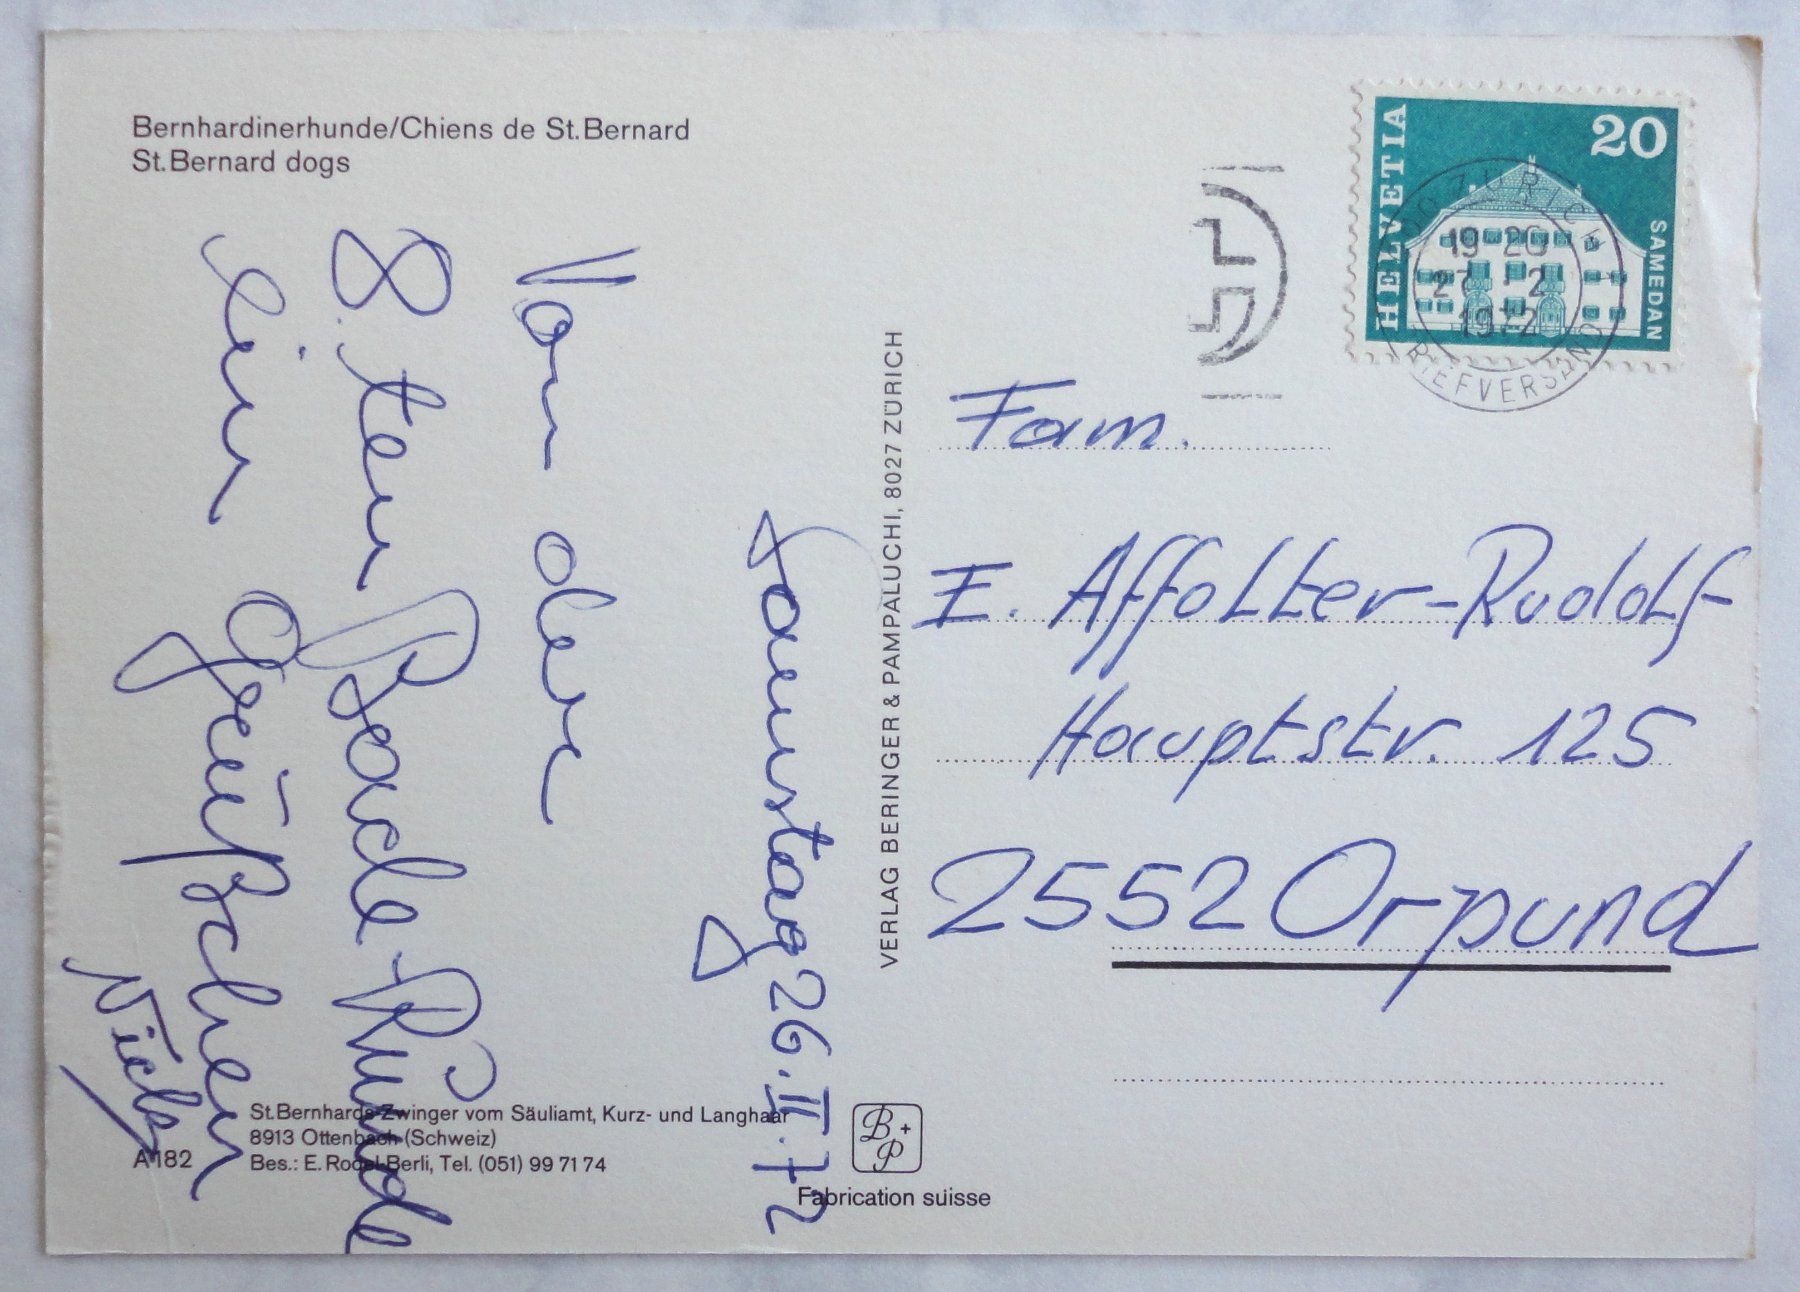 Bernhardinerhunde/Chiens de St.Bernard
St.Bernard dogs
Samstag 26.II.72
Von der
8. ten Bade-Runde
ein Grüßchen
Nick
St.Bernhards-Zwinger vom Säuliamt, Kurz- und Langhaar
8913 Ottenbach (Schweiz)
A 182 Bes.: E. Rodel-Berli, Tel. (051) 99 71 74
VERLAG BERINGER & PAMPALUCHI, 8027 ZÜRICH
B+P
Fabrication suisse
HELVETIA
20
SAMEDAN
ZÜRICH 1
19-20
27.-2
1972
BRIEFVERSAND
Fam.
E. Affolter-Rudolf
Hauptstr. 125
2552 Orpund